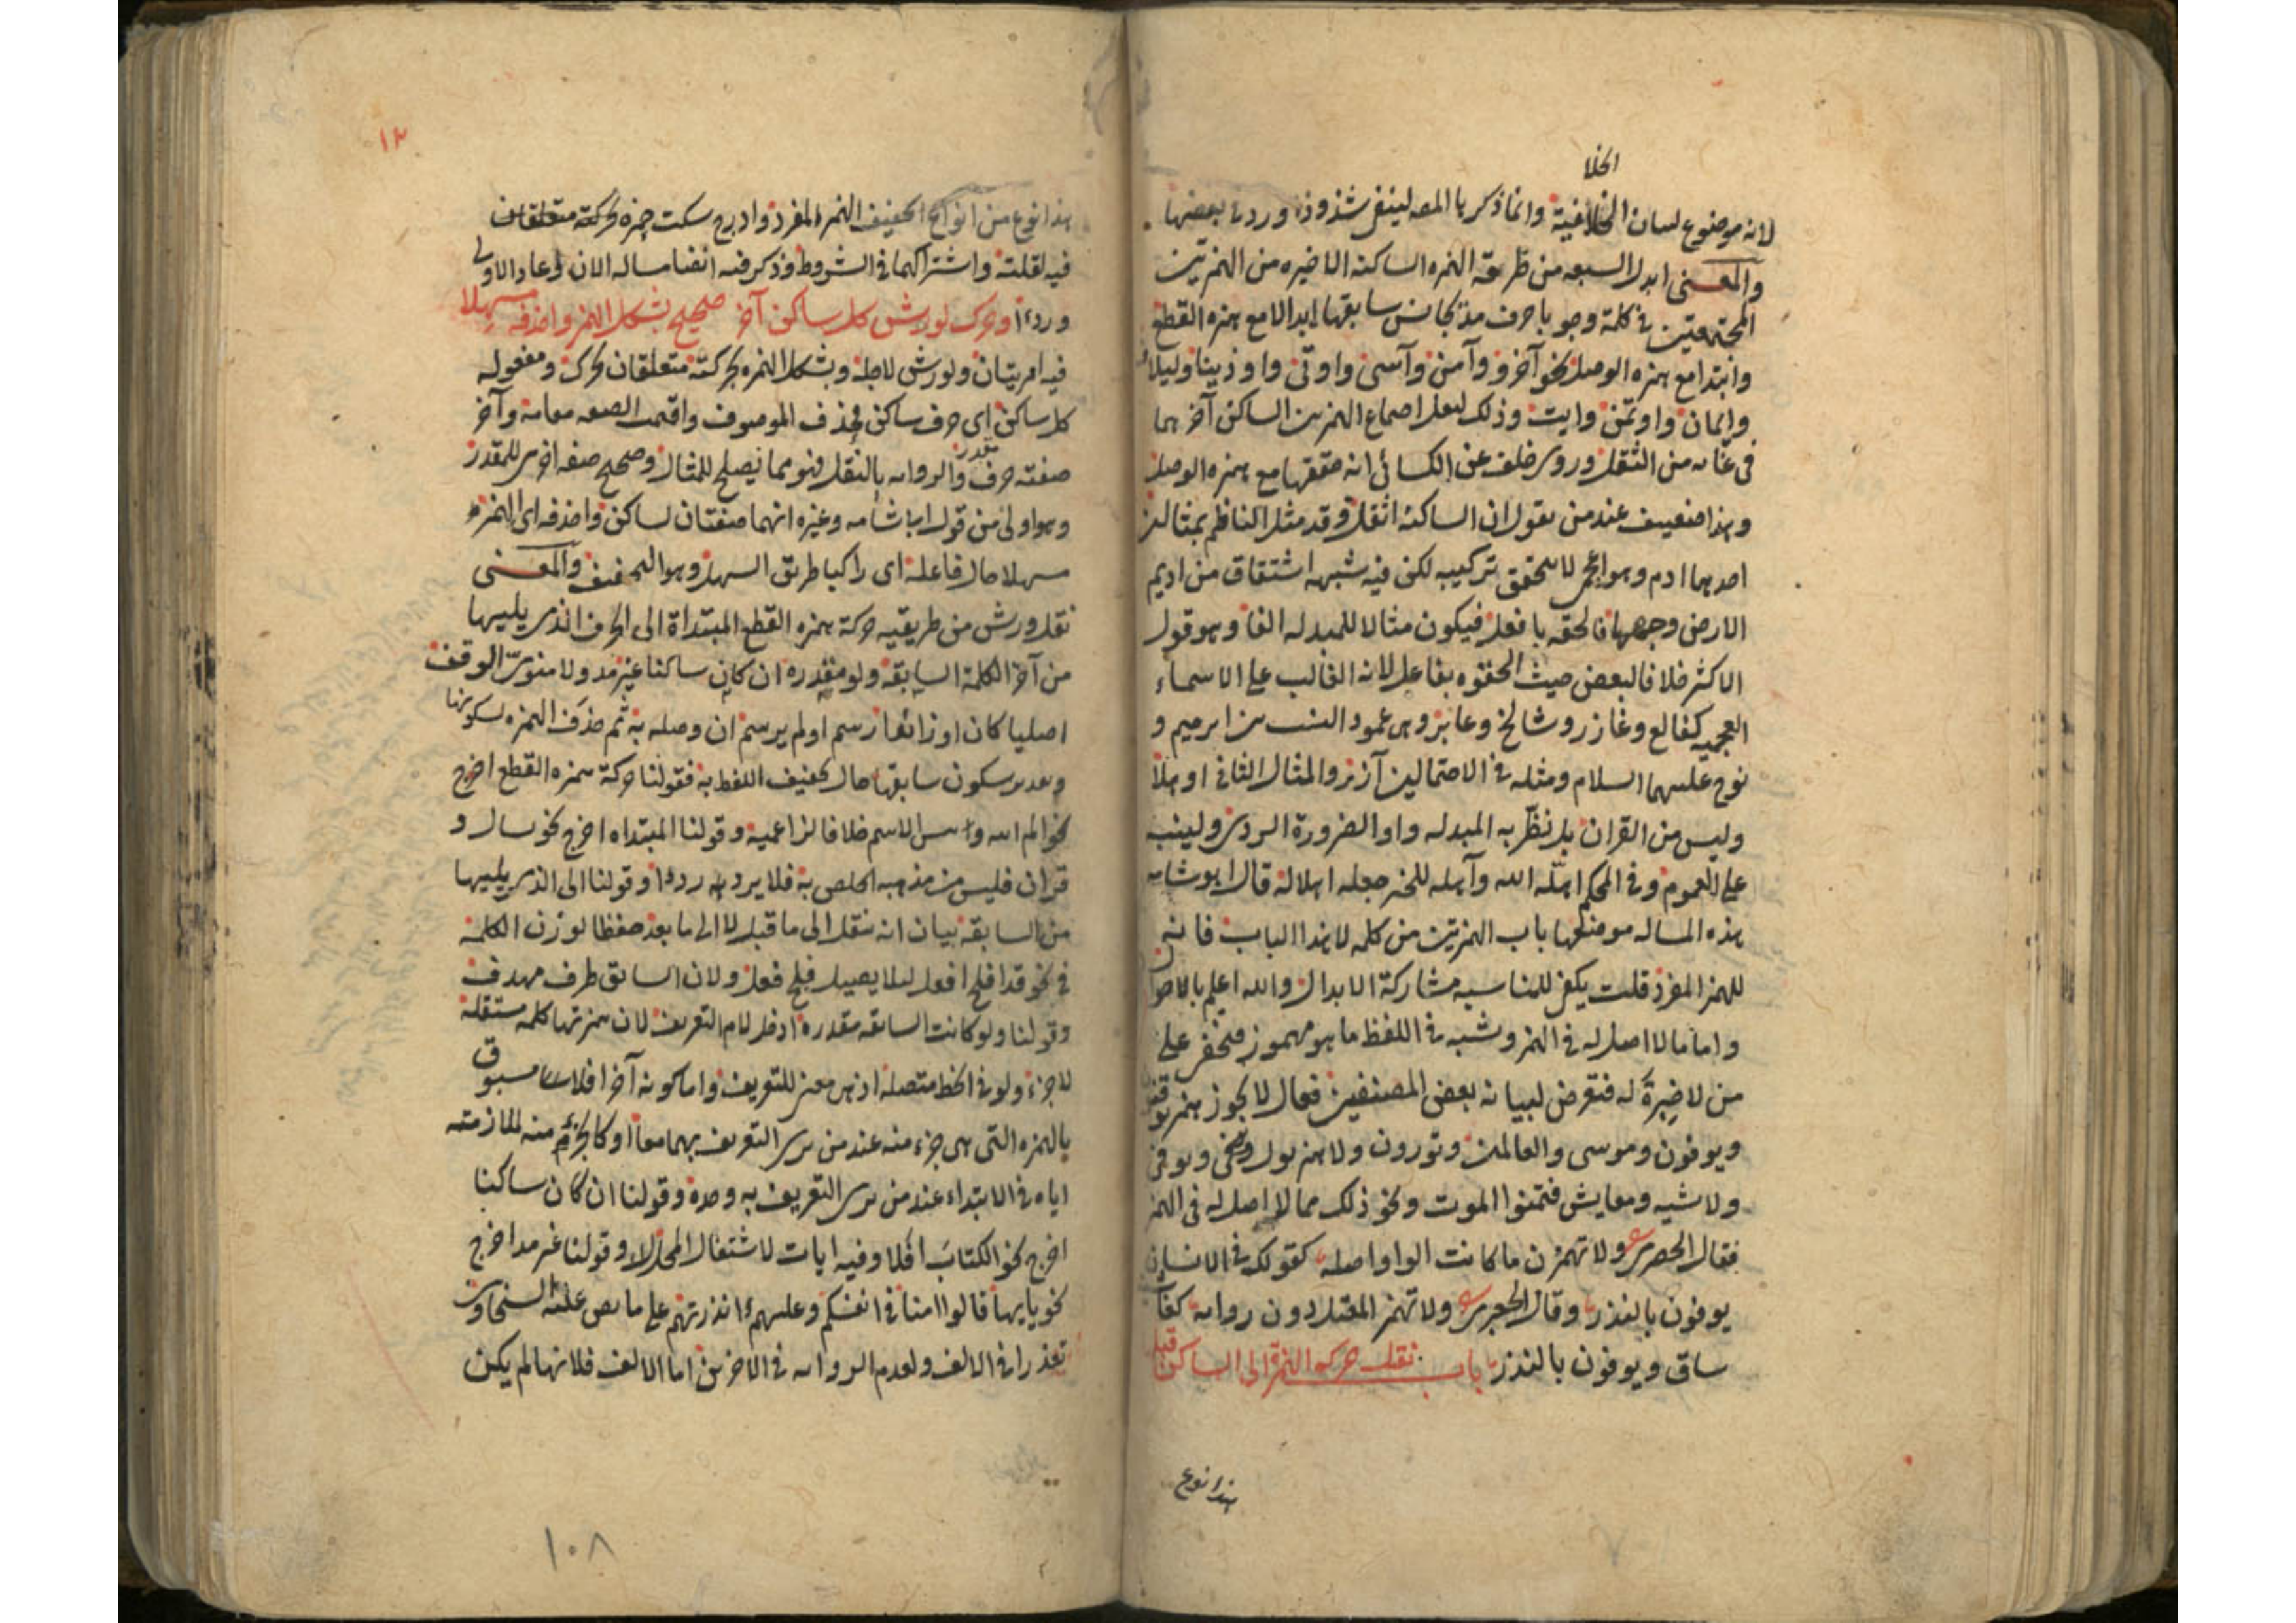 الخلا
لانه موضوع لبيان الخلافية وانما ذكر بالمعه لينفى شذوذ ورد بعضها
والمعنى ابدل السبعه من طريقه الهمزه الساكنه الاخيره من الهمزتين
المجتمعتين فى كلمة وجوبا حرف مد يجانس سابقها ابدا لا مع همزه القطع
وابتدا مع همزه الوصل نحو آخر وآمن وآسى واوتى واوذينا وليلاف
وايمان واوتمن وايت وذلك لثقل اجماع الهمزتين الساكن آخرهما
فى غايه من الثقل وروى خلف عن الكسائى انه حققها مع همزه الوصل
وهذا ضعيف عند من يقول ان الساكنه اثقل وقد مثل الناظم بمثالين
احدهما ادم وهو اعجمى لا يتحقق تركيبه لكن فيه شبهه اشتقاق من اديم
الارض وجهها فالحقه بافعل فيكون مثالا للمبدله الفا وهو قول
الاكثر خلافا لبعض حيث الحقوه بفاعل لانه الغالب على الاسماء
العجميه كفالع وغازر وشالخ وعابر وهى عمود النسب بين ابرهيم و
نوح عليهما السلام ومثله فى الاحتمالين آزر والمثال الثانى اوهلا
وليس من القران بل نظّر به المبدله واوا لضرورة الروى ولينبه
على العموم وفى المحكم اهّله الله وآهله للخير جعله اهلا له قال ابو شامه
هذه المساله موضعها باب الهمزتين من كلمه لا هذا الباب فانه
للهمز المفرد قلت يكفى للمناسبه مشاركة الابدال والله اعلم بالصواب
واما ما لا اصل له فى الهمز وشبه فى اللفظ ما هو مهموز فتخفى على
من لا خبرة له فتعرض لبيانه بعض المصنفين فقال لا يجوز همز يوقنون
ويوفون وموسى والعالمين وتورون ولا همز يول ويوفى
ولا شيه ومعايش فتمنوا الموت ونحو ذلك مما لا اصل له فى الهمز
فقال الحصرى ولا تهمزن ما كانت الواو اصله كقولك فى الانسان
يوفون بالنذر وقال الجعبرى ولا تهمز المعتل دون روايه كفا
ساق ويوفون بالنذر باب نقل حركة الهمزة الى الساكن قبلها
هذا نوع
١٢
هذا نوع من انواع تخفيف الهمز المفرد وادرج سكت حمزه لحركته متعلقان
فيه لقلته واشتراكهما فى الشروط وذكر فيه ايضا مساله الان وعادا الاولى
وردءا وحرك لورش كل ساكن آخر صحيح بشكل الهمز واحذفه مسهلا
فيه امريتان ولورش لاجله وبشكل الهمزه بحركته متعلقان بحرك ومفعوله
كل ساكن اى حرف ساكن فحذف الموصوف واقيمت الصفه مقامه وآخر
صفته حرف والروايه بالنقل فنو مما يصلح للمثال وصحيح صفه اخرى للمقدر
وهو اولى من قول ابى شامه وغيره انهما صفتان لساكن واحذفه اى الهمزه
مسهلا حال فاعله اى راكبا طريق السهل وهو التخفيف والمعنى
نقل ورش من طريقيه حركة همزه القطع المبتداة الى الحرف الذى يليها
من آخر الكلمة السابقه ولو مقدره ان كان ساكنا غير مد ولا منوىّ الوقف
اصليا كان او زائدا رسم او لم يرسم ان وصله به ثم حذف الهمزه لسكونها
وتقدير سكون سابقها حال تخفيف اللفظ به فقولنا حركة همزه القطع اخرج
نحو الم الله وبئس الاسم خلافا لزاعميه وقولنا المبتداه اخرج نحو يسال و
قران فليس من مذهبه فلا يرد به ردءا وقولنا الى الذى يليها
من السابقه بيان انه ينقل الى ما قبل لا الى ما بعد حفظا لوزن الكلمه
فى نحو قد افلح افعل لئلا يصير فلح فعل ولان السابق طرف مهدف
وقولنا ولو كانت السابقه مقدره ادخل لام التعريف لان همزتها كلمه مستقله
لا جزء ولو فى الخط متصله اذ هى معنى للتعريف واما كونه آخرا فلانه مسبوق
بالهمزه التى هى جزء منه عند من يرى التعريف بهما معا او كالجزء منه لملازمته
اياه فى الابتداء عند من يرى التعريف به وحده وقولنا ان كان ساكنا
اخرج نحو الكتابَ افلا وفيه ايات لاشتغال المحل وقولنا غير مد اخرج
نحو يايها قالوا امنا فى انفسكم وعليهمُ ءانذرتهم على ما نص عليه السخاوى
تعذرا فى الالف ولعدم الروايه فى الاخرين اما الالف فلانها لم يكن
١٠٨